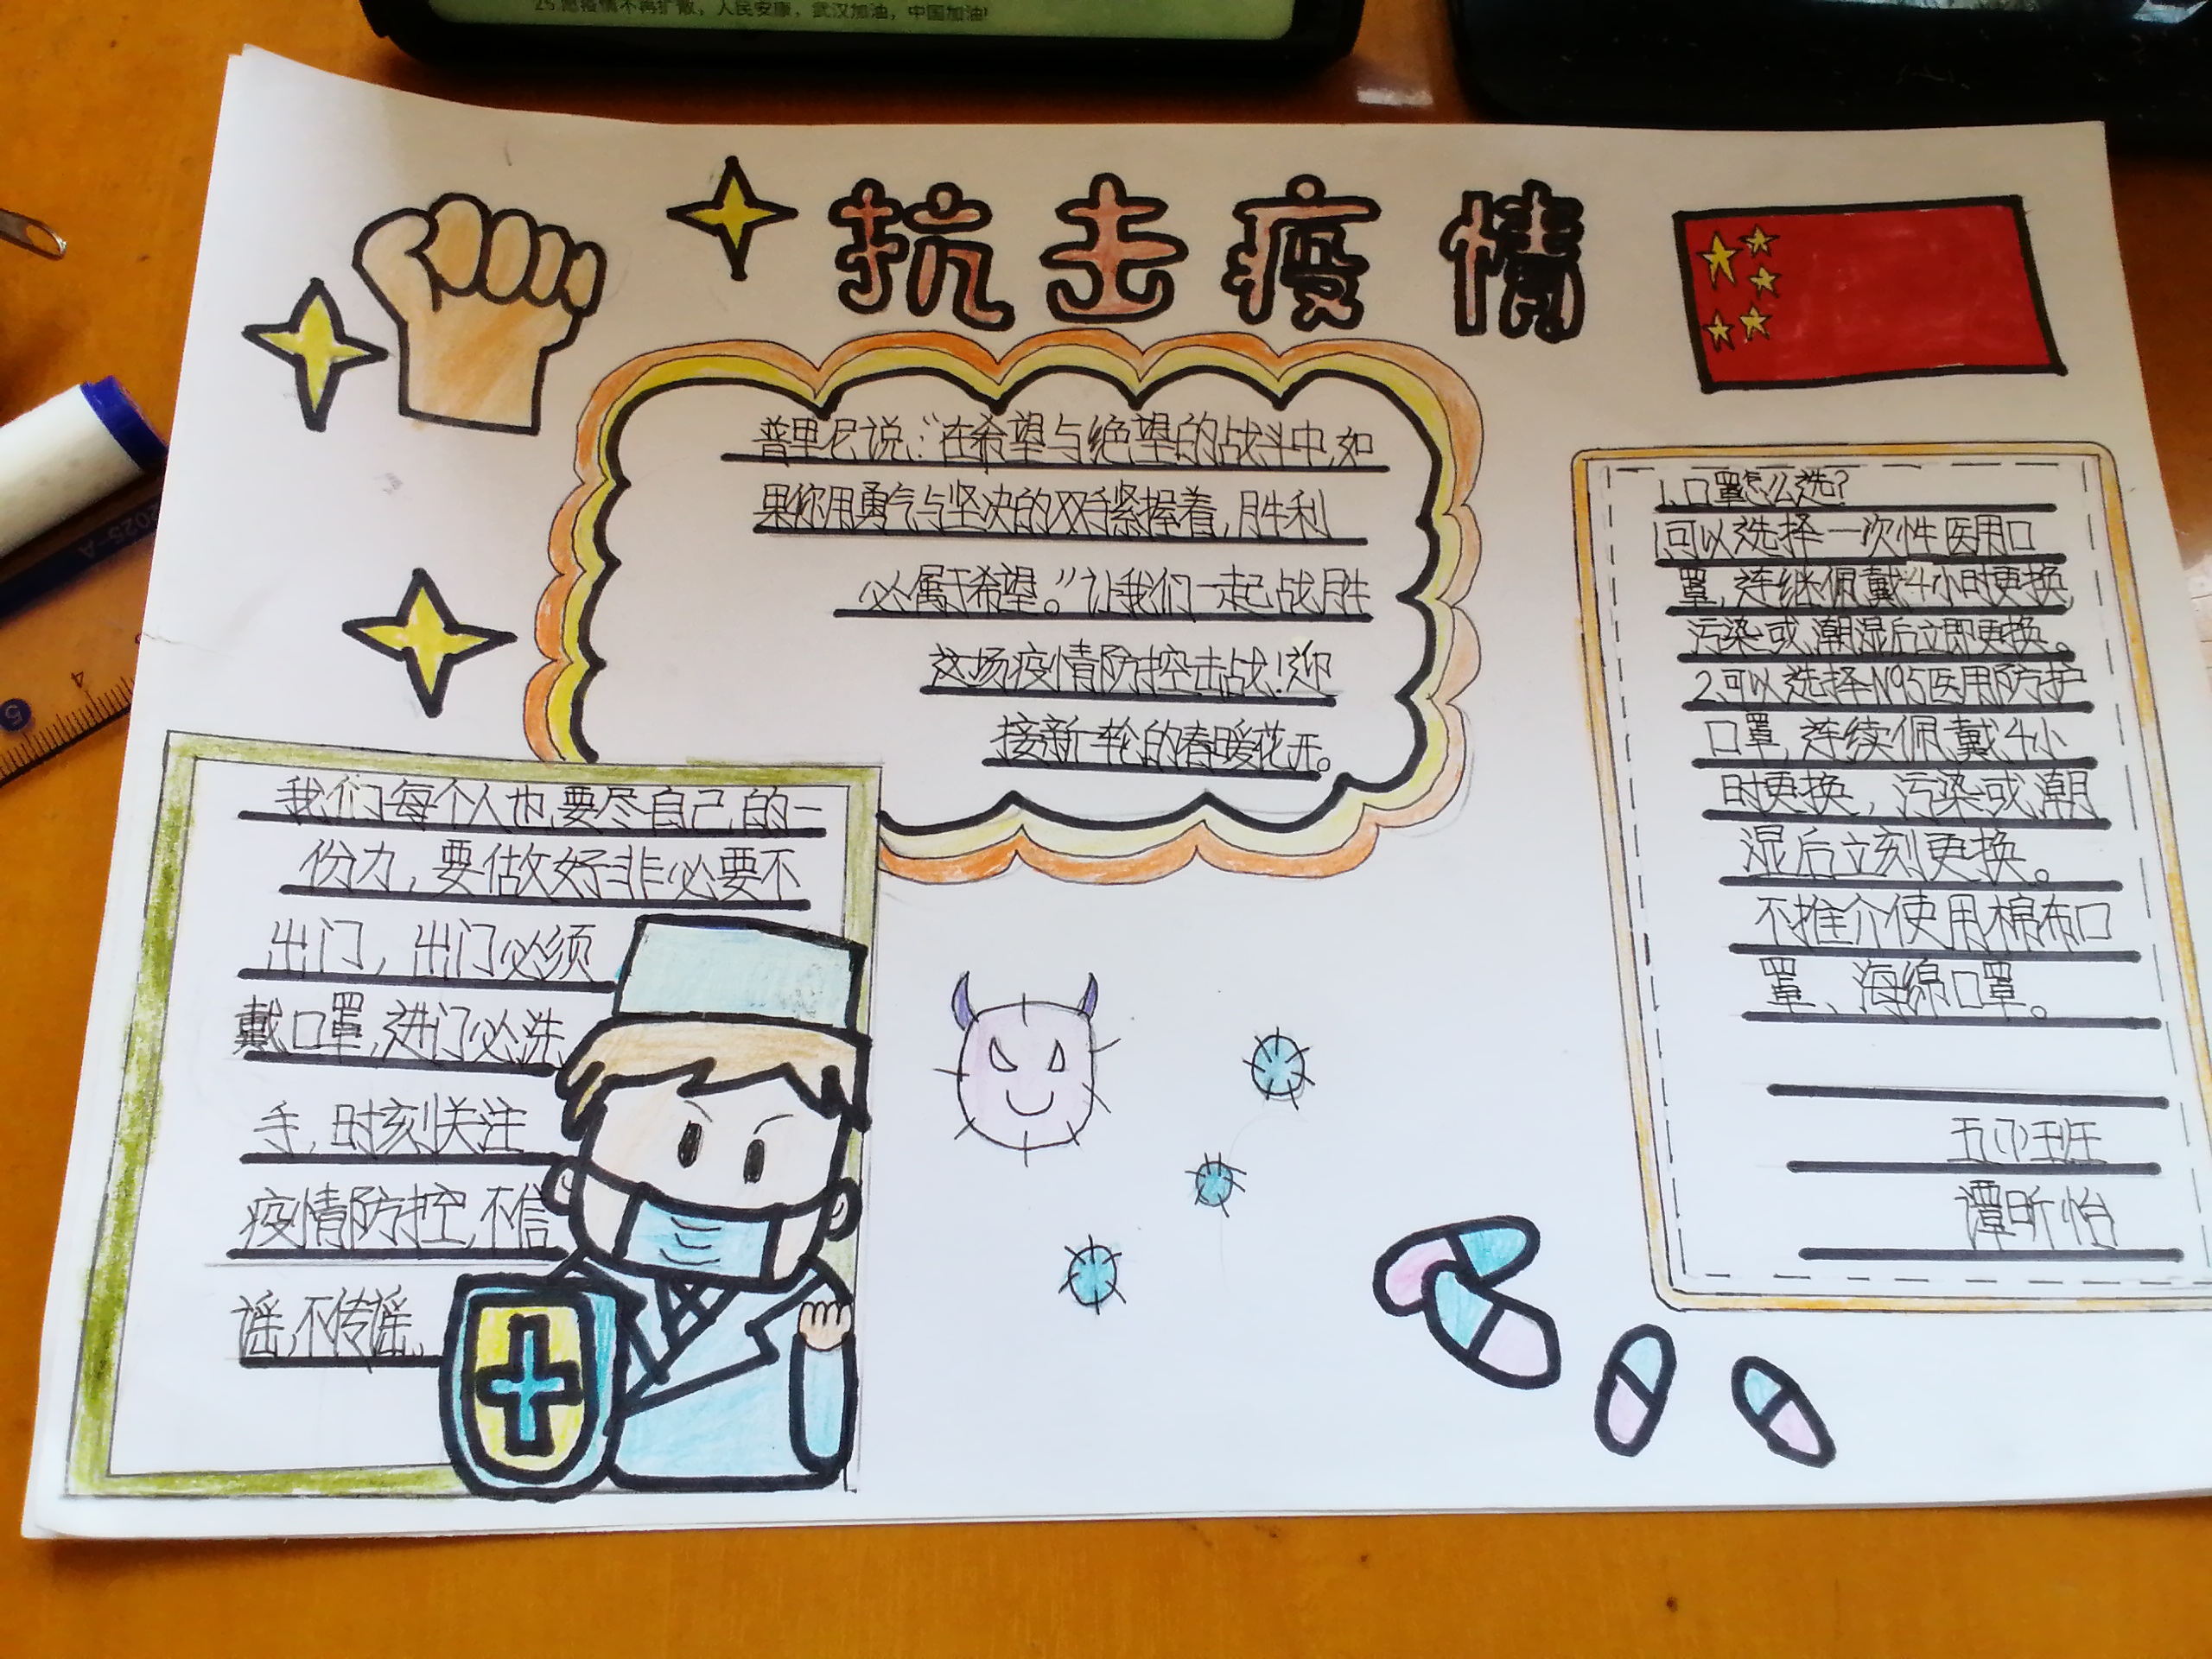 25.愿疫情不再扩散，人民安康，武汉加油，中国加油!
抗击疫情
普里尼说：“在希望与绝望的战斗中,如
果你用勇气与坚决的双手紧握着,胜利
必属于希望。”让我们一起战胜
这场疫情防控击战!迎
接新一轮的春暖花开。
我们每个人也要尽自己的一
份力,要做好非必要不
出门,出门必须
戴口罩,进门必洗
手,时刻关注
疫情防控,不信
谣,不传谣.
1.口罩怎么选?
1可以选择一次性医用口
罩,连继佩戴4小时更换,
污染或潮湿后立即更换。
2.可以选择N95医用防护
口罩,连续佩戴4小
时更换,污染或潮
湿后立刻更换。
不推介使用棉布口
罩、海绵口罩。
谭昕怡
2025-A
4
5